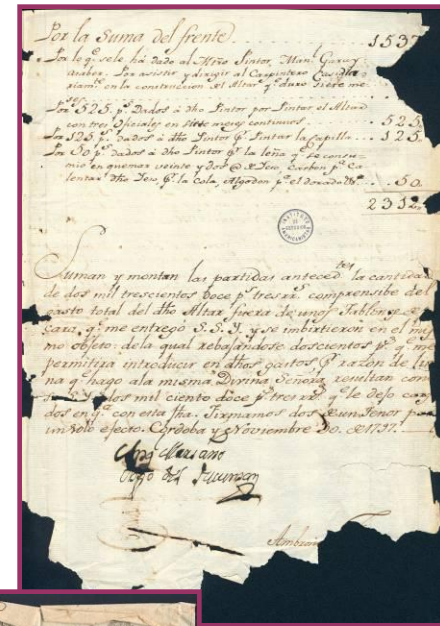 Por la Suma del frente . . . . 1537
Por lo q.e se le há dado al Mtro Pintor, Man.l
por asistir y dirigir al Carpintero
riam.te en la construccion del Altar q.e duro siete me-
ses.
Por 525 p.s dados à dho Pintor por Pintar el Altar
con tres Oficiales en siete meses continuos . . . 525
Por 125 p.s dados à dho Pintor p.r Pintar la Capilla . . . 125
Por 50 p.s dados a dho Pintor p.r la leña q.e se consu-
mio en quemar veinte y dos @ de Yeso, Carbon p.a Ca-
lentar dho Yeso, p.r la Cola, Algodon p.a el dorado &a . . . 50
2312
Suman y montan las partidas anteced.tes la cantidad
de dos mil trescientos doce p.s tres rr.s comprensibe del
gasto total del dho Altar fuera de unos Tablones de
q.e me entregó S.S.Y. y se imbirtieron en el mis-
mo objeto: de la qual rebajandose doscientos p.s q.e me
permitirá introducir en dhos gastos p.r razon de lim
na q.e hago a la misma Divina Señora, resultan con
dos mil ciento doce p.s tres rr.s q.e le dejo
dos en q.ta con esta fha. Firmamos dos de un tenor p.a
un solo efecto. Cordoba y Noviembre 30. de 1797.
Ang.l Mariano
Obpo del Tucuman
Ambrosio